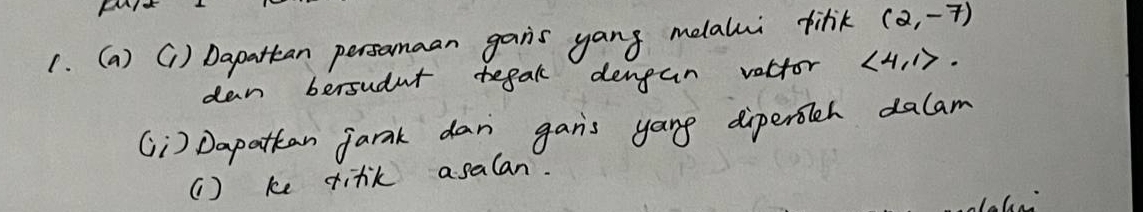 1. (a) (i) Dapatkan persamaan garis yang melalui titik (2,-7)
dan bersudut tegak dengan vektor <4,1>.
(ii) Dapatkan jarak dari garis yang diperoleh dalam
(i) ke titik asalan.